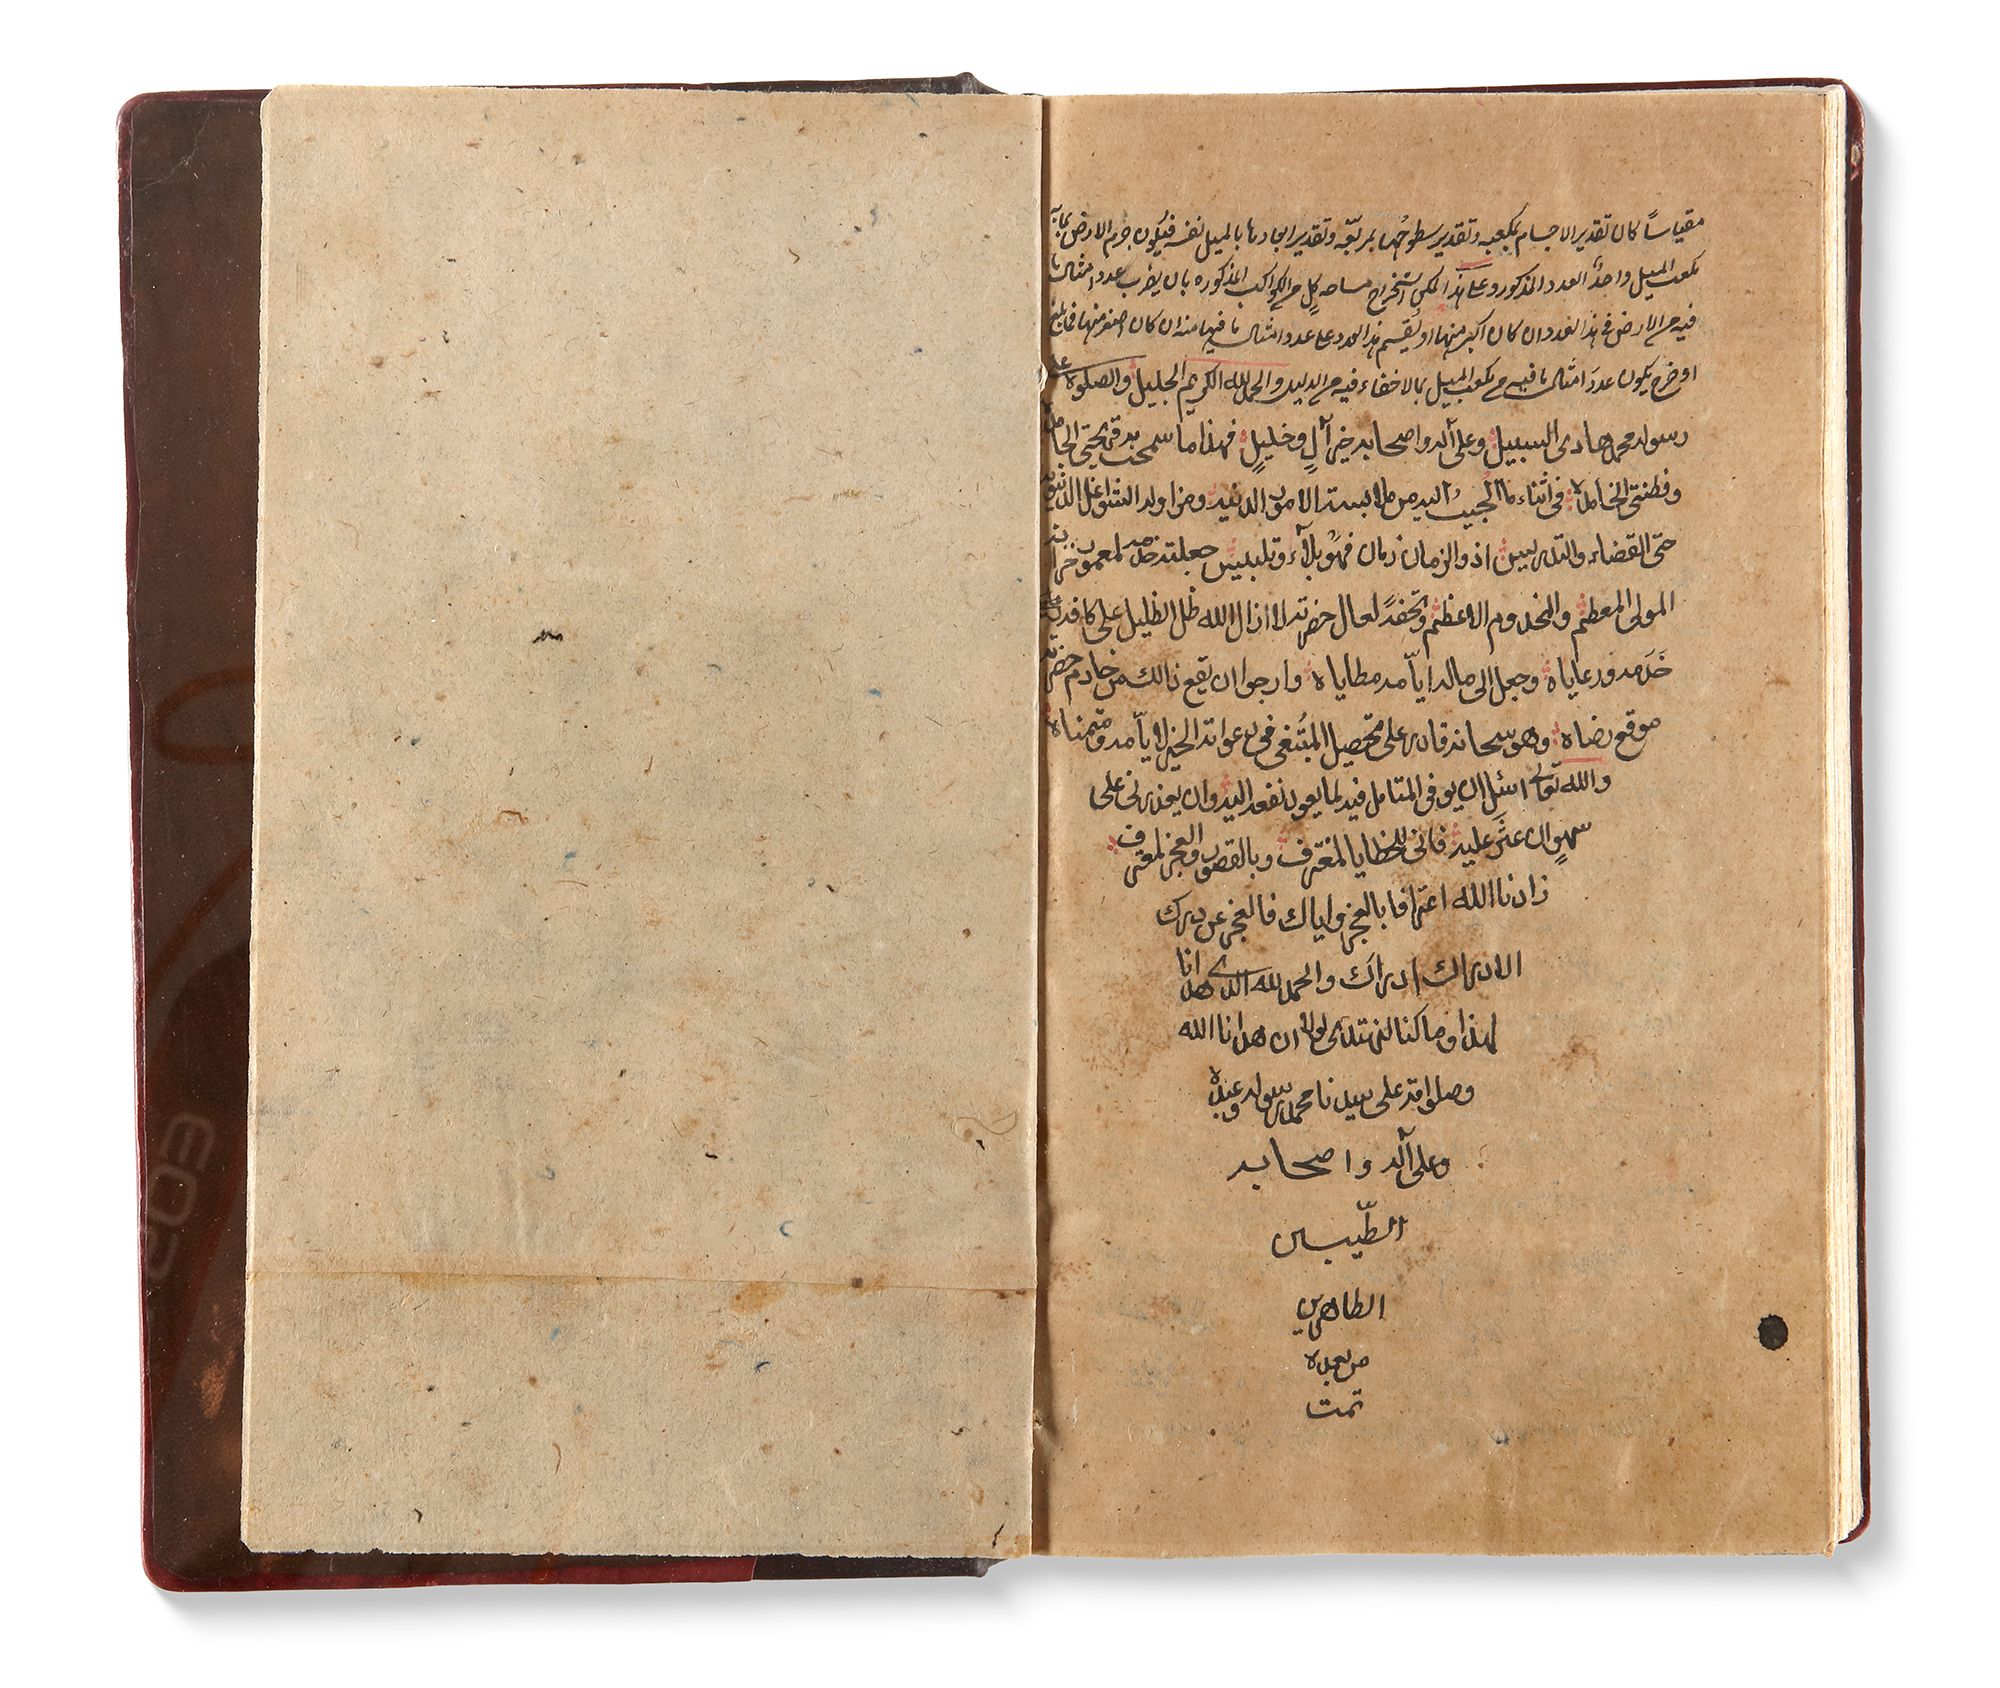 مقياساً كان تقدير الاجسام بمكعبه وتقدير سطوحها بمربعه وتقدير ابعادها بالميل نفسه فيكون جرم الارض بمايه
مكعب الميل واحداً العدد المذكور وعلى هذا استخراج مساحه كل من الكواكب المذكوره بان يضرب عدد امثال ما
فيه من الارض فى هذا العدد ان كان اكبر منها او يقسم هذا العدد على عدد امثال ما فيها منه ان كان اصغر منها فما بلغ
او خرج يكون عدد امثال ما فيه من مكعب الميل بما لا خفاء فيه من الدليل والحمد لله الكريم الجليل والصلوة على
رسوله محمد هادى السبيل وعلى آله واصحابه خير آل وخليل فهذا ما سمحت به قريحتى الجامدة
وفطنتى الخامدة فى اثناء ما اليه من ملابسة الامور الدنية ومزاولة الشواغل
حتى القضاء والتدريس اذ والزمان زمان فهو بلاء وتلبيس جعلته خدمة لمعمور خزانة
المولى المعظم والمخدوم الاعظم وتحفة لعال حضرته لا ازال الله ظل الظليل على كافة
خدمه ورعاياه وجعل الى ماله ايامه مطاياه وارجو ان يقع ذالك من خادم حضرته
موقع رضاه وهو سبحانه قادر على تحصيل المبتغى فى عوائد الخير لايامه ومتمناه
والله تعالى اسئل ان يوفق المتامل فيه لما يعود نفعه اليه وان يعذرنى على
سهو ان عثر عليه فانى للخطايا لمقترف وبالقصور والعجز لمعترف
زادنا الله اعترافا بالعجز واياك فالعجز عن درك
الادراك ادراك والحمد لله الذى هدانا
لهذا وما كنا لنهتدى لولا ان هدانا الله
وصلواته على سيدنا محمد رسوله وعبده
وعلى آله واصحابه
الطيبين
الطاهرين
من بعده
تمت